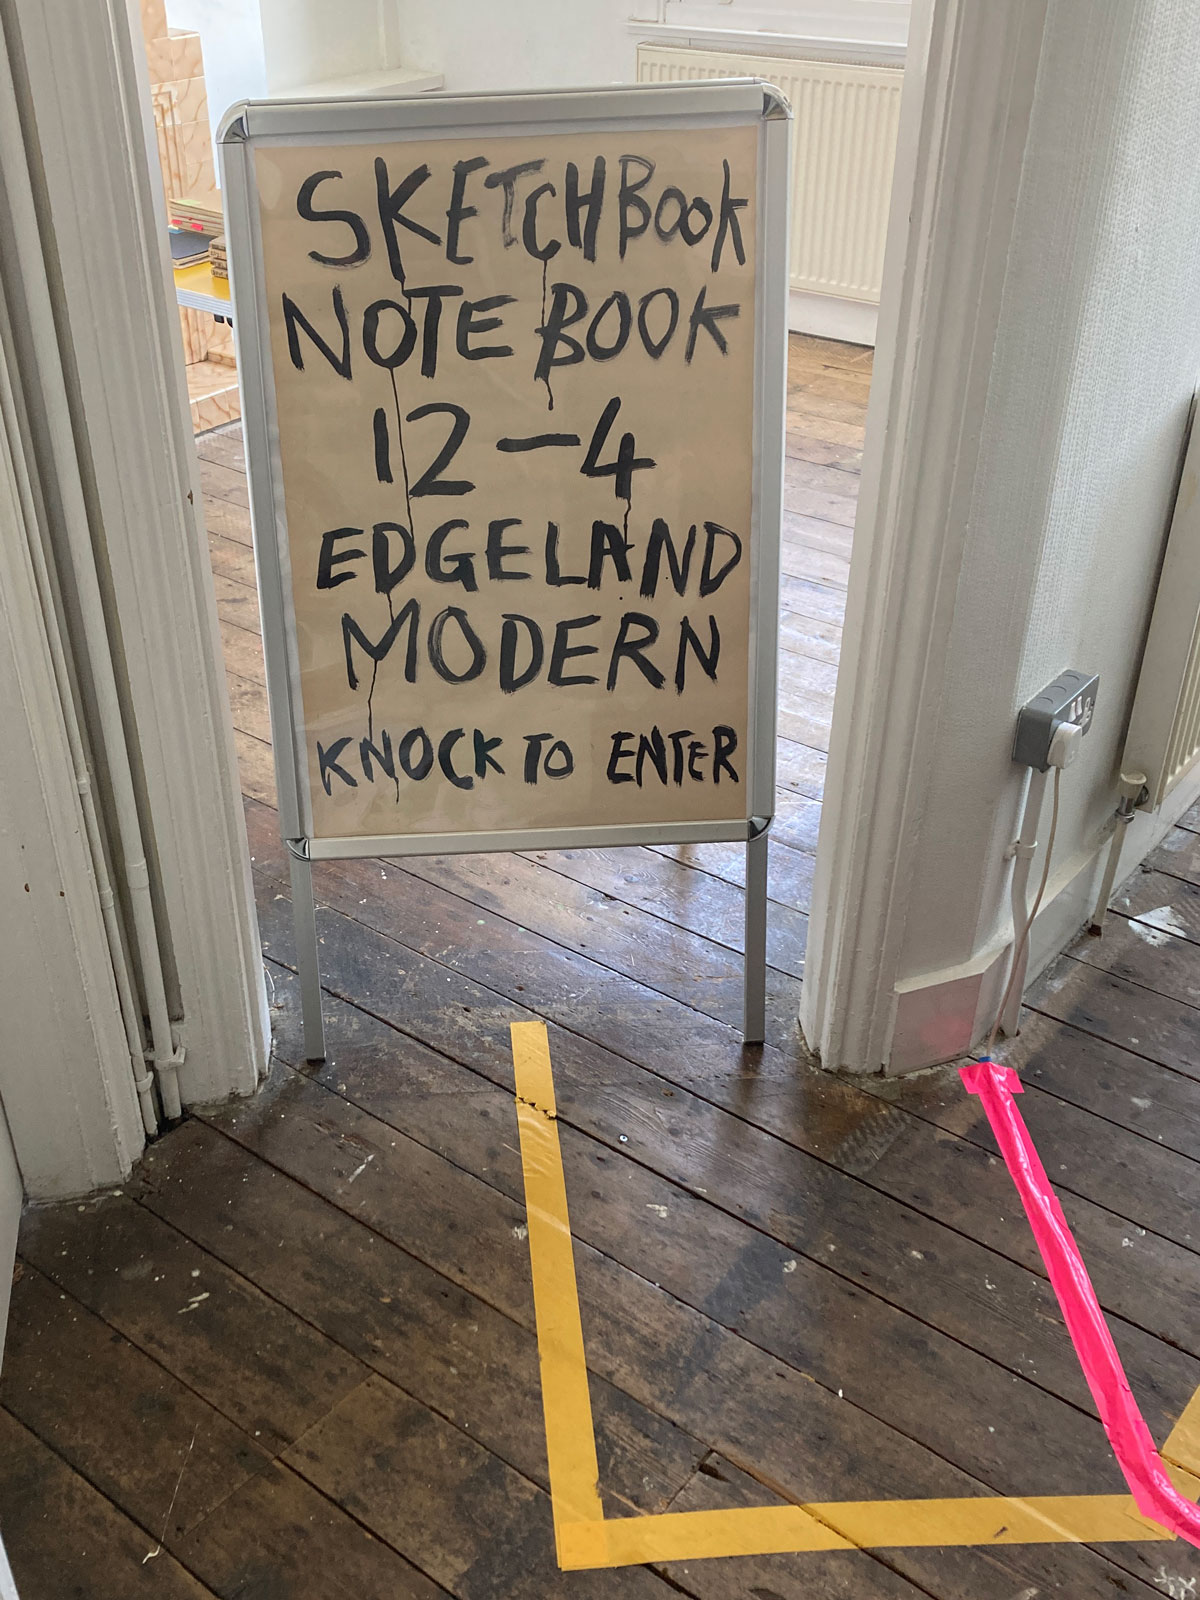 SKETCHBOOK
NOTEBOOK
12–4
EDGELAND
MODERN
KNOCK TO ENTER